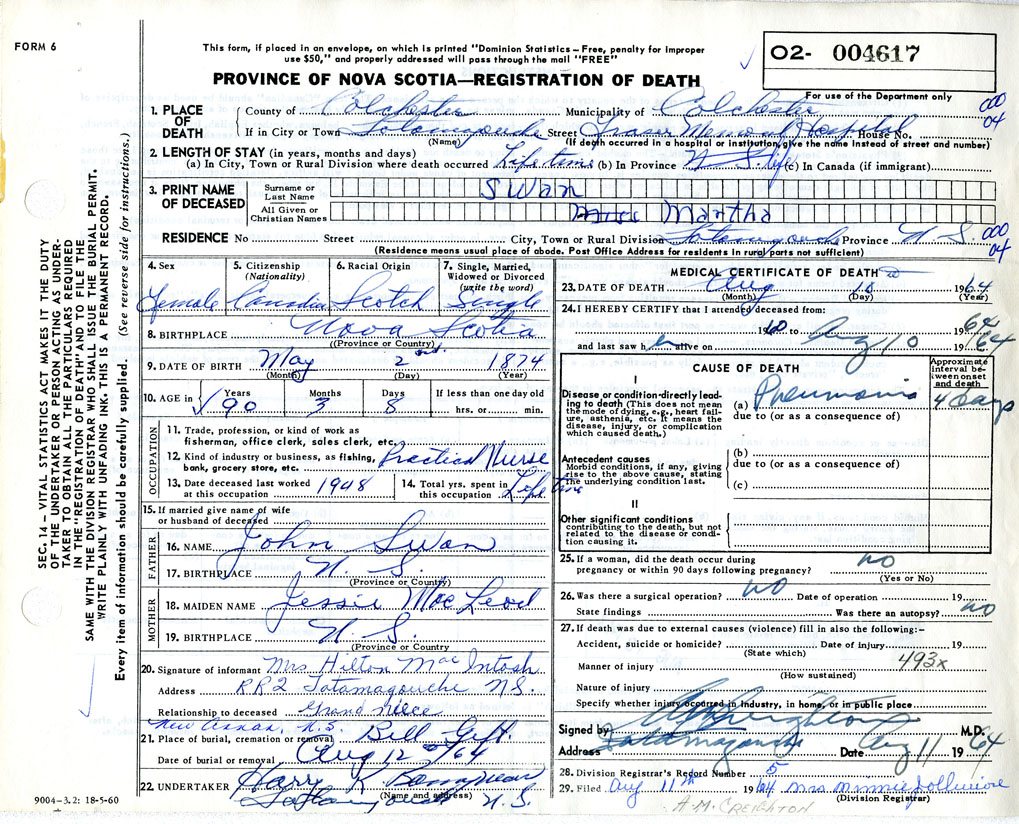 FORM 6
This form, if placed in an envelope, on which is printed "Dominion Statistics – Free, penalty for improper
use $50," and properly addressed will pass through the mail "FREE"
PROVINCE OF NOVA SCOTIA—REGISTRATION OF DEATH
O2- 004617
For use of the Department only
000
04
1. PLACE OF DEATH
County of Colchester Municipality of Colchester
If in City or Town Tatamagouche Street Fraser Memorial Hospital House No.
(Name) (If death occurred in a hospital or institution, give the name instead of street and number)
2. LENGTH OF STAY (in years, months and days)
(a) In City, Town or Rural Division where death occurred Life time (b) In Province N S life (c) In Canada (if immigrant)
3. PRINT NAME OF DECEASED
Surname or Last Name SWAN
All Given or Christian Names Miss Martha
RESIDENCE No Street City, Town or Rural Division Tatamagouche Province N. S.
000
04
(Residence means usual place of abode. Post Office Address for residents in rural parts not sufficient)
4. Sex
Female
5. Citizenship
(Nationality)
Canadian
6. Racial Origin
Scotch
7. Single, Married,
Widowed or Divorced
(write the word)
Single
8. BIRTHPLACE Nova Scotia
(Province or Country)
9. DATE OF BIRTH May 2nd. 1874
(Month) (Day) (Year)
10. AGE in Years Months Days If less than one day old
90 3 8 hrs. or min.
OCCUPATION
11. Trade, profession, or kind of work as
fisherman, office clerk, sales clerk, etc.
12. Kind of industry or business, as fishing, Practical Nurse
bank, grocery store, etc.
13. Date deceased last worked
at this occupation 1948
14. Total yrs. spent in
this occupation Life time
15. If married give name of wife
or husband of deceased
FATHER
16. NAME John Swan
17. BIRTHPLACE N. S.
(Province or Country)
MOTHER
18. MAIDEN NAME Jessie MacLeod
19. BIRTHPLACE N. S.
(Province or Country)
20. Signature of informant Mrs Hilton MacIntosh
Address RR2 Tatamagouche N.S.
Relationship to deceased Grand Niece
New Annan, N.S.
21. Place of burial, cremation or removal Bell
Date of burial or removal Aug 12 /64
22. UNDERTAKER Harry K.
Tatamagouche N. S.
(Name and address)
MEDICAL CERTIFICATE OF DEATH
23. DATE OF DEATH Aug 10 1964
(Month) (Day) (Year)
24. I HEREBY CERTIFY that I attended deceased from:
19 to Aug 10 1964
and last saw h alive on 1964
CAUSE OF DEATH
Approximate
interval be-
tween onset
and death
I
Disease or condition directly lead-
ing to death (This does not mean
the mode of dying, e.g., heart fail-
ure, asthenia, etc. It means the
disease, injury, or complication
which caused death.)
(a) Pneumonia 4 days
due to (or as a consequence of)
Antecedent causes
Morbid conditions, if any, giving
rise to the above cause, stating
the underlying condition last.
(b)
due to (or as a consequence of)
(c)
II
Other significant conditions
contributing to the death, but not
related to the disease or condi-
tion causing it.
25. If a woman, did the death occur during
pregnancy or within 90 days following pregnancy? no
(Yes or No)
26. Was there a surgical operation? no Date of operation 19
State findings Was there an autopsy? no
27. If death was due to external causes (violence) fill in also the following:–
Accident, suicide or homicide? Date of injury 19
(State which)
493x
Manner of injury
(How sustained)
Nature of injury
Specify whether injury occurred in industry, in home, or in public place
Signed by A M Creighton M.D.
Address Tatamagouche Date Aug 11 1964
28. Division Registrar's Record Number 5
29. Filed Aug 11th 1964 Mrs Minnie
(Division Registrar)
A.M. CREIGHTON
SEC. 14 – VITAL STATISTICS ACT MAKES IT THE DUTY
OF THE UNDERTAKER OR PERSON ACTING AS UNDER-
TAKER TO OBTAIN ALL THE PARTICULARS REQUIRED
IN THE "REGISTRATION OF DEATH" AND TO FILE THE
SAME WITH THE DIVISION REGISTRAR WHO SHALL ISSUE THE BURIAL PERMIT.
WRITE PLAINLY WITH UNFADING INK. THIS IS A PERMANENT RECORD.
Every item of information should be carefully supplied. (See reverse side for instructions.)
9004–3.2: 18-5-60